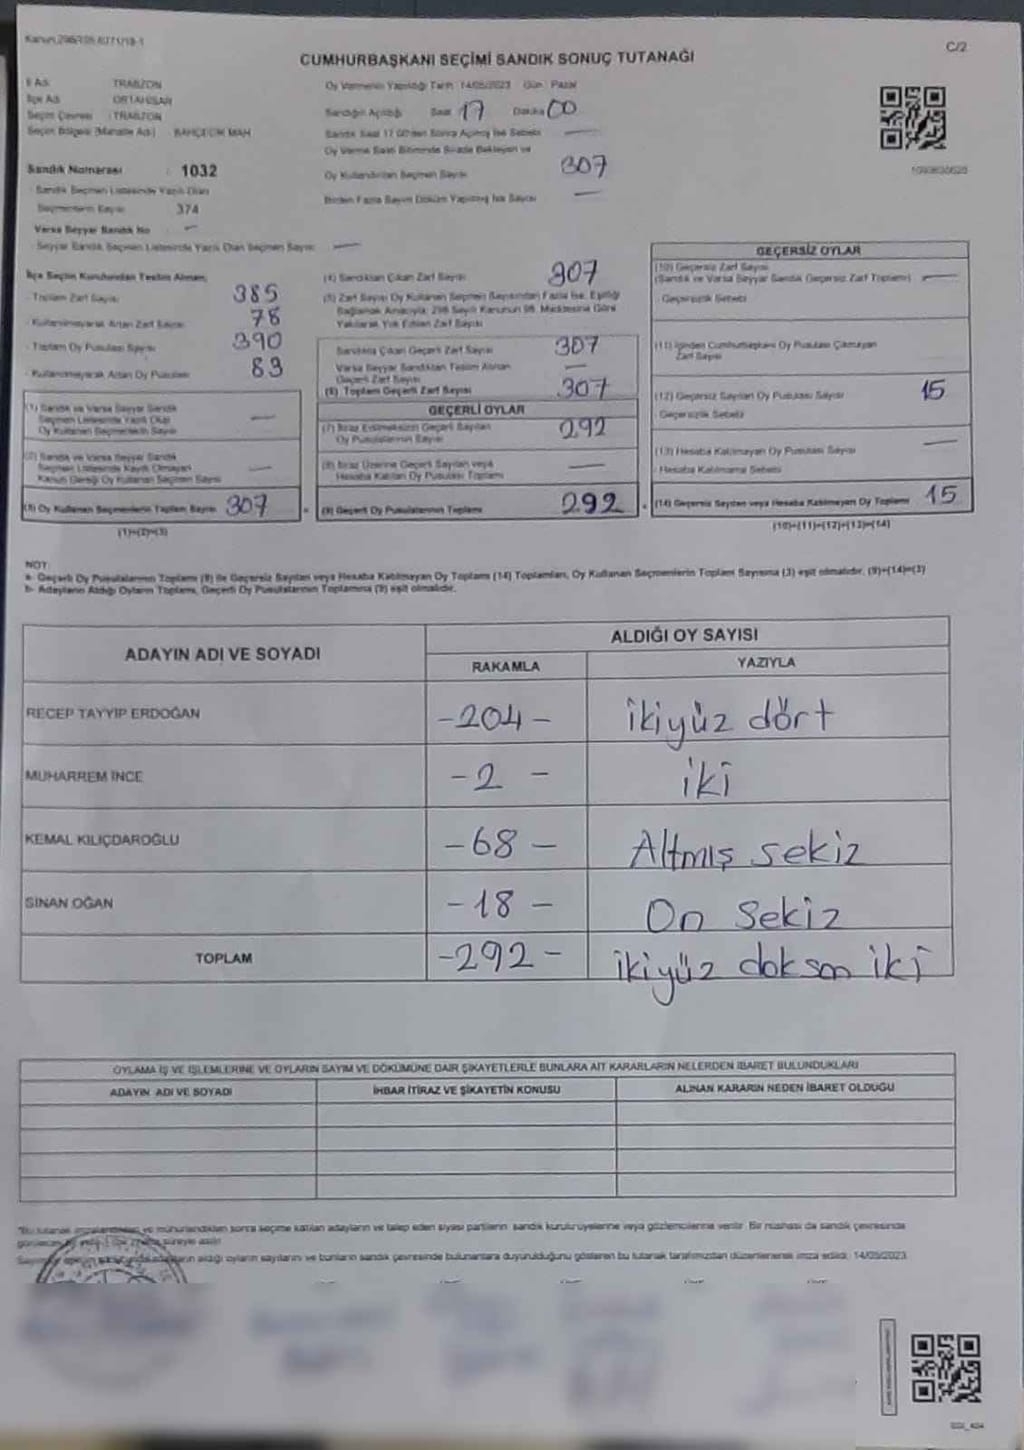 C/2
CUMHURBAŞKANI SEÇİMİ SANDIK SONUÇ TUTANAĞI
İl Adı TRABZON
İlçe Adı ORTAHİSAR
Seçim Çevresi : TRABZON
Seçim Bölgesi (Mahalle Adı) BAHÇECİK MAH
Sandık Numarası : 1032
Sandık Seçmen Listesinde Yazılı Olan
Seçmenlerin Sayısı 374
Varsa Seyyar Sandık No —
Seyyar Sandık Seçmen Listesinde Yazılı Olan Seçmen Sayısı —
Oy Vermenin Yapıldığı Tarih : 14/05/2023 Gün : Pazar
Sandığın Açıldığı Saat 17 Dakika 00
Sandık Saat 17.00'den Sonra Açılmış İse Sebebi —
Oy Verme Saati Bitiminde Sırada Bekleyen ve
Oy Kullandırılan Seçmen Sayısı 307
Birden Fazla Sayım Döküm Yapılmış İse Sayısı —
İlçe Seçim Kurulundan Teslim Alınan;
- Toplam Zarf Sayısı 385
- Kullanılmayarak Artan Zarf Sayısı 78
- Toplam Oy Pusulası Sayısı 390
- Kullanılmayarak Artan Oy Pusulası 83
(1) Sandık ve Varsa Seyyar Sandık
Seçmen Listesinde Yazılı Olup
Oy Kullanan Seçmenlerin Sayısı —
(2) Sandık ve Varsa Seyyar Sandık
Seçmen Listesinde Kayıtlı Olmayan
Kanun Gereği Oy Kullanan Seçmen Sayısı —
(3) Oy Kullanan Seçmenlerin Toplam Sayısı 307
(1)+(2)=(3)
(4) Sandıktan Çıkan Zarf Sayısı 307
(5) Zarf Sayısı Oy Kullanan Seçmen Sayısından Fazla İse, Eşitliği
Sağlamak Amacıyla, 298 Sayılı Kanunun 98. Maddesine Göre
Yakılarak Yok Edilen Zarf Sayısı
Sandıkta Çıkan Geçerli Zarf Sayısı 307
Varsa Seyyar Sandıktan Teslim Alınan
Geçerli Zarf Sayısı —
(6) Toplam Geçerli Zarf Sayısı 307
GEÇERLİ OYLAR
(7) İtiraz Edilmeksizin Geçerli Sayılan
Oy Pusulalarının Sayısı 292
(8) İtiraz Üzerine Geçerli Sayılan veya
Hesaba Katılan Oy Pusulası Toplamı —
(9) Geçerli Oy Pusulalarının Toplamı 292
GEÇERSİZ OYLAR
(10) Geçersiz Zarf Sayısı
(Sandık ve Varsa Seyyar Sandık Geçersiz Zarf Toplamı) —
Geçersizlik Sebebi
(11) İçinden Cumhurbaşkanı Oy Pusulası Çıkmayan
Zarf Sayısı
(12) Geçersiz Sayılan Oy Pusulası Sayısı 15
- Geçersizlik Sebebi
(13) Hesaba Katılmayan Oy Pusulası Sayısı —
- Hesaba Katılmama Sebebi
(14) Geçersiz Sayılan veya Hesaba Katılmayan Oy Toplamı 15
(10)+(11)+(12)+(13)=(14)
NOT:
a- Geçerli Oy Pusulalarının Toplamı (9) ile Geçersiz Sayılan veya Hesaba Katılmayan Oy Toplamı (14) Toplamları, Oy Kullanan Seçmenlerin Toplam Sayısına (3) eşit olmalıdır. (9)+(14)=(3)
b- Adayların Aldığı Oyların Toplamı, Geçerli Oy Pusulalarının Toplamına (9) eşit olmalıdır.
ADAYIN ADI VE SOYADI ALDIĞI OY SAYISI
RAKAMLA YAZIYLA
RECEP TAYYİP ERDOĞAN -204- ikiyüz dört
MUHARREM İNCE -2- iki
KEMAL KILIÇDAROĞLU -68- Altmış sekiz
SİNAN OĞAN -18- On Sekiz
TOPLAM -292- ikiyüz doksan iki
OYLAMA İŞ VE İŞLEMLERİNE VE OYLARIN SAYIM VE DÖKÜMÜNE DAİR ŞİKAYETLERLE BUNLARA AİT KARARLARIN NELERDEN İBARET BULUNDUKLARI
ADAYIN ADI VE SOYADI İHBAR İTİRAZ VE ŞİKAYETİN KONUSU ALINAN KARARIN NEDEN İBARET OLDUĞU
*Bu tutanak imzalandıktan ve mühürlendikten sonra seçime katılan adayların ve talep eden siyasi partilerin sandık kurulu üyelerine veya gözlemcilerine verilir. Bir nüshası da sandık çevresinde
süreyle asılır.
aldığı oyların sayılarını ve bunların sandık çevresinde bulunanlara duyurulduğunu gösteren bu tutanak tarafımızdan düzenlenerek imza edildi. 14/05/2023